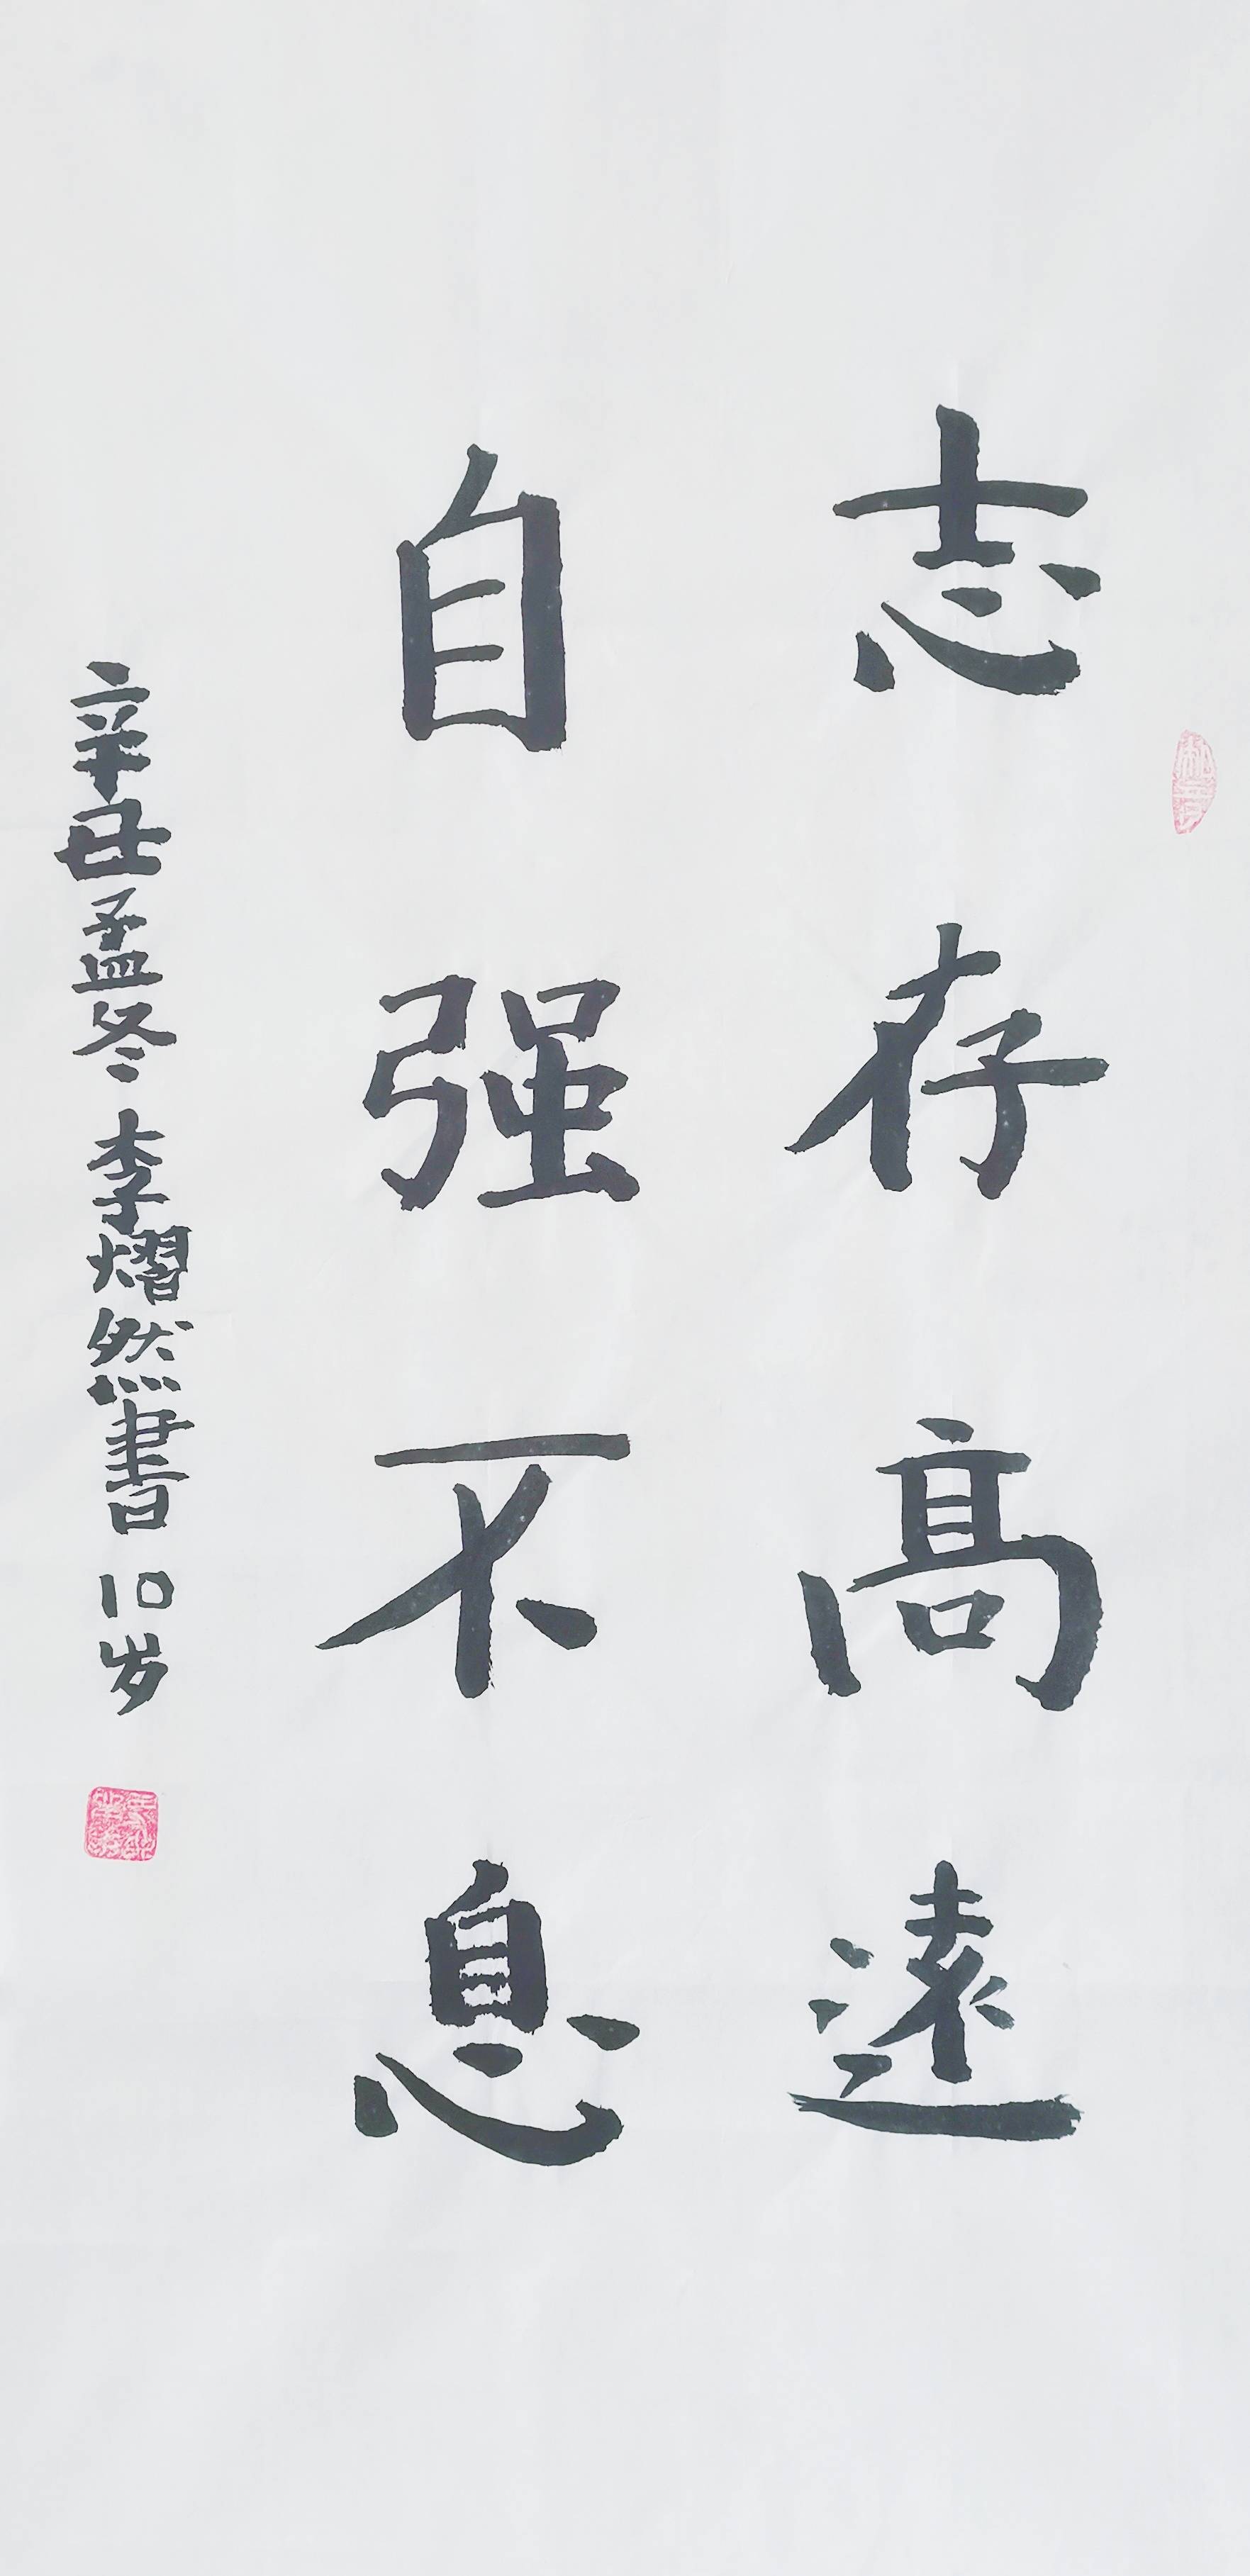 志存高遠
自强不息
辛丑孟冬 李熠然書 10岁